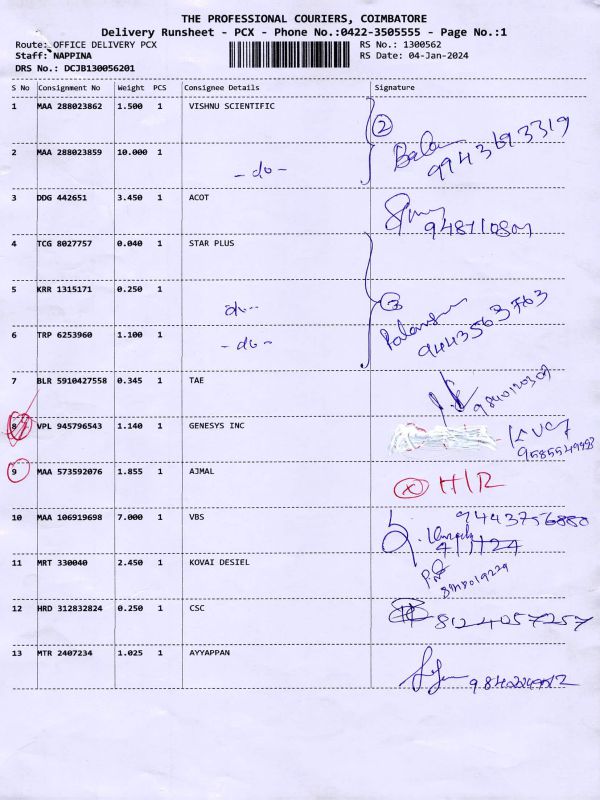 THE PROFESSIONAL COURIERS, COIMBATORE
Delivery Runsheet - PCX - Phone No.:0422-3505555 - Page No.:1
Route: OFFICE DELIVERY PCX
RS No.: 1300562
Staff: NAPPINA
RS Date: 04-Jan-2024
DRS No.: DCJB130056201
S No Consignment No Weight PCS Consignee Details Signature
1 MAA 288023862 1.500 1 VISHNU SCIENTIFIC
2
2 MAA 288023859 10.000 1
Bala 9943693319
- do -
3 DDG 442651 3.450 1 ACOT
4 TCG 8027757 0.040 1 STAR PLUS
5 KRR 1315171 0.250 1
3
do--
6 TRP 6253960 1.100 1
- do -
9443563763
7 BLR 5910427558 0.345 1 TAE
8 VPL 945796543 1.140 1 GENESYS INC
9 MAA 573592076 1.855 1 AJMAL
X H/R
10 MAA 106919698 7.000 1 VBS
9443756880
4/1/24
11 MRT 330040 2.450 1 KOVAI DESIEL
12 HRD 312832824 0.250 1 CSC
8124057257
13 MTR 2407234 1.025 1 AYYAPPAN